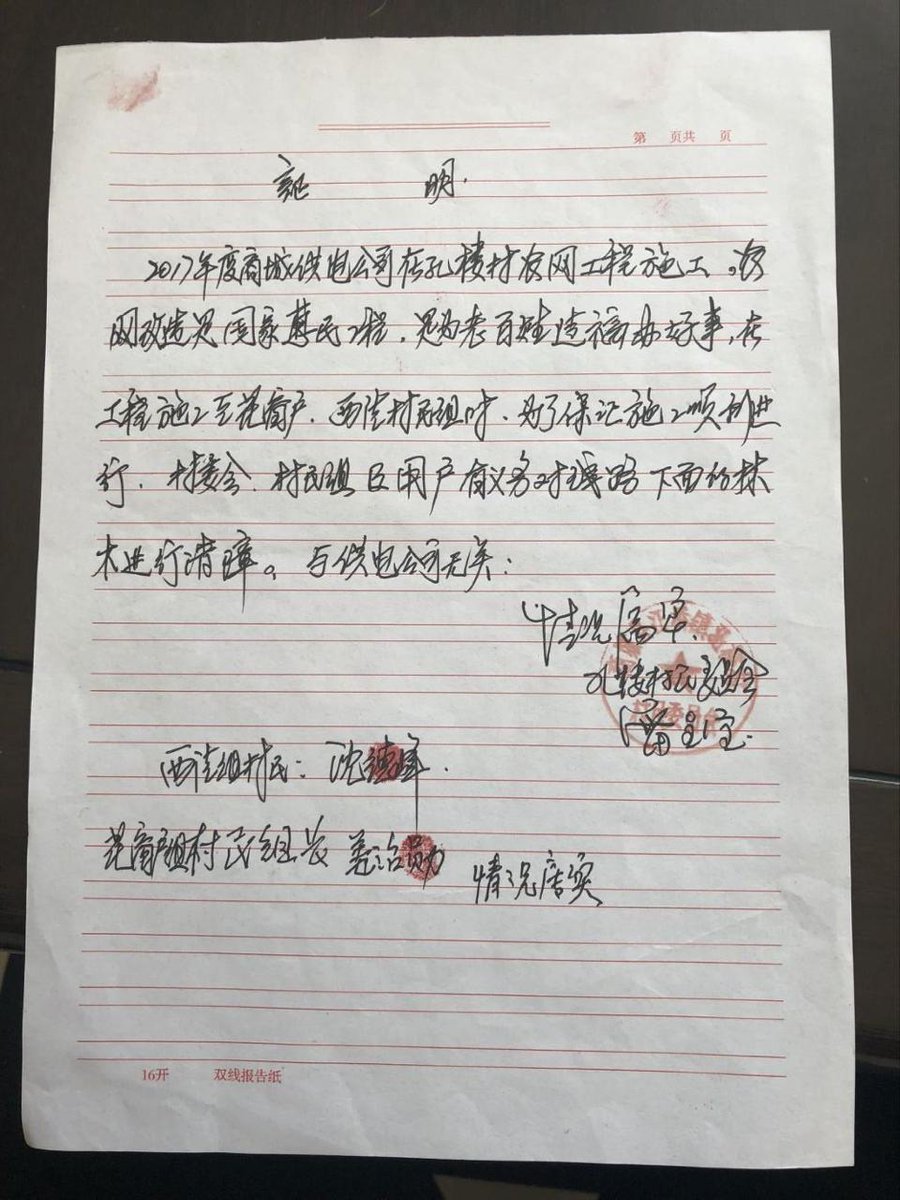 第 页共 页
证 明.
2017年度商城供电公司在孔楼村农网工程施工。农
网改造是国家惠民工程,是为老百姓造福办好事,在
工程施工至花商户、西洼村民组时,为了保证施工顺利进
行,村委会、村民组及用户有义务对线路下面的林
木进行清障。与供电公司无关:
情况属实.
孔楼村民委员会
西洼组村民:沈德军.
村民组长
情况属实
16开 双线报告纸